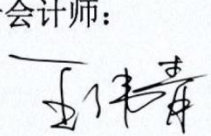 会计师：
王伟青